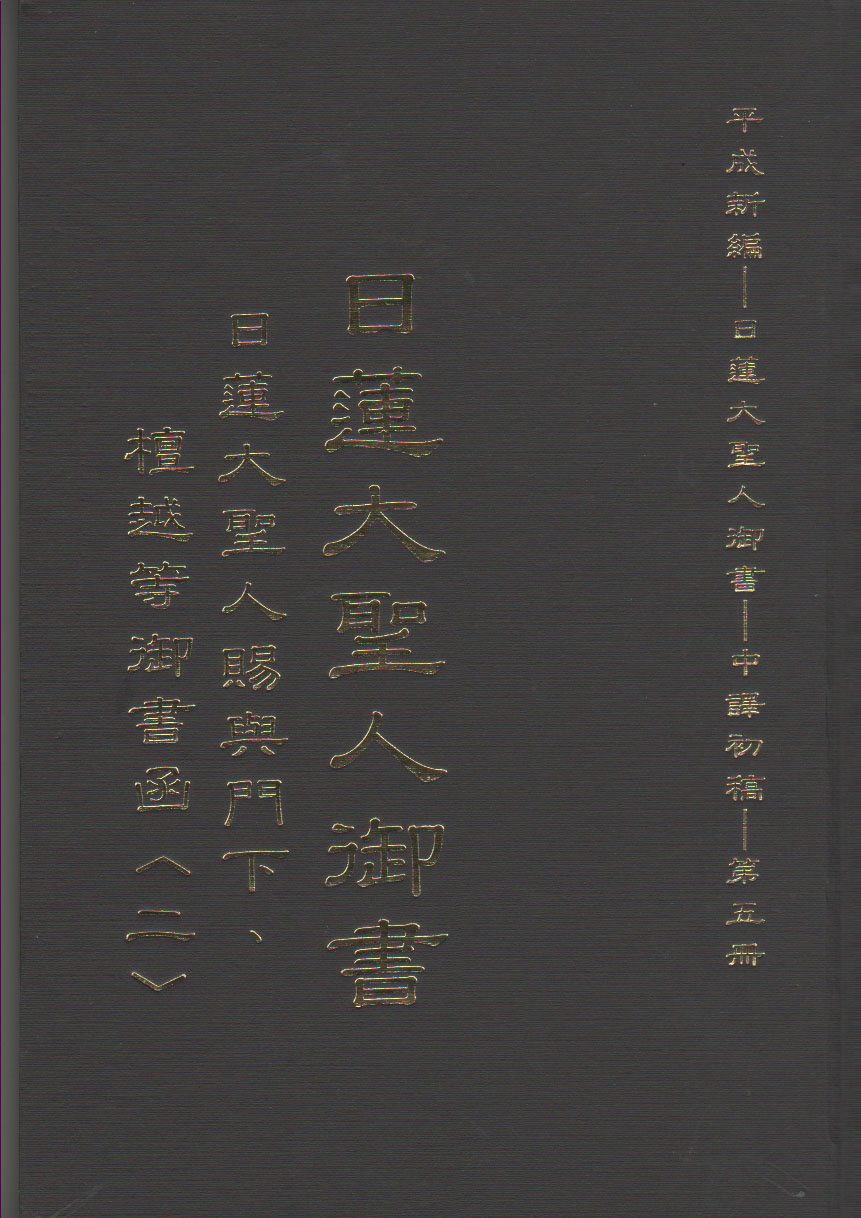 平成新編—日蓮大聖人御書—中譯初稿—第五冊
日蓮大聖人御書
日蓮大聖人賜與門下、
檀越等御書函〈二〉